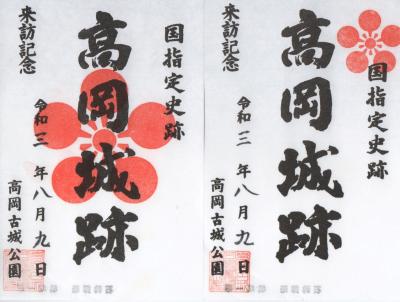 国指定史跡
高岡城跡
来訪記念
令和三年八月九日
高岡古城公園
国指定史跡
高岡城跡
来訪記念
令和三年八月九日
高岡古城公園